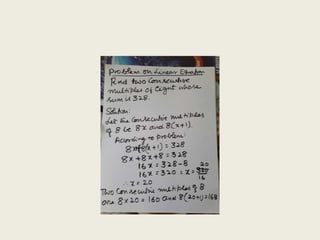 Problem on Linear Equation
Find two Consecutive
multiples of Eight whose
sum is 328.
Solution:
Let the Consecutive multiples
of 8 be 8x and 8(x+1).
According to Problem:
8x+8(x+1) = 328
8x+8x+8 = 328
16x = 328-8
16x = 320 ∴ x = 320/16 20
∴ x = 20
Two Consecutive multiples of 8
are 8×20 = 160 and 8(20+1)=168